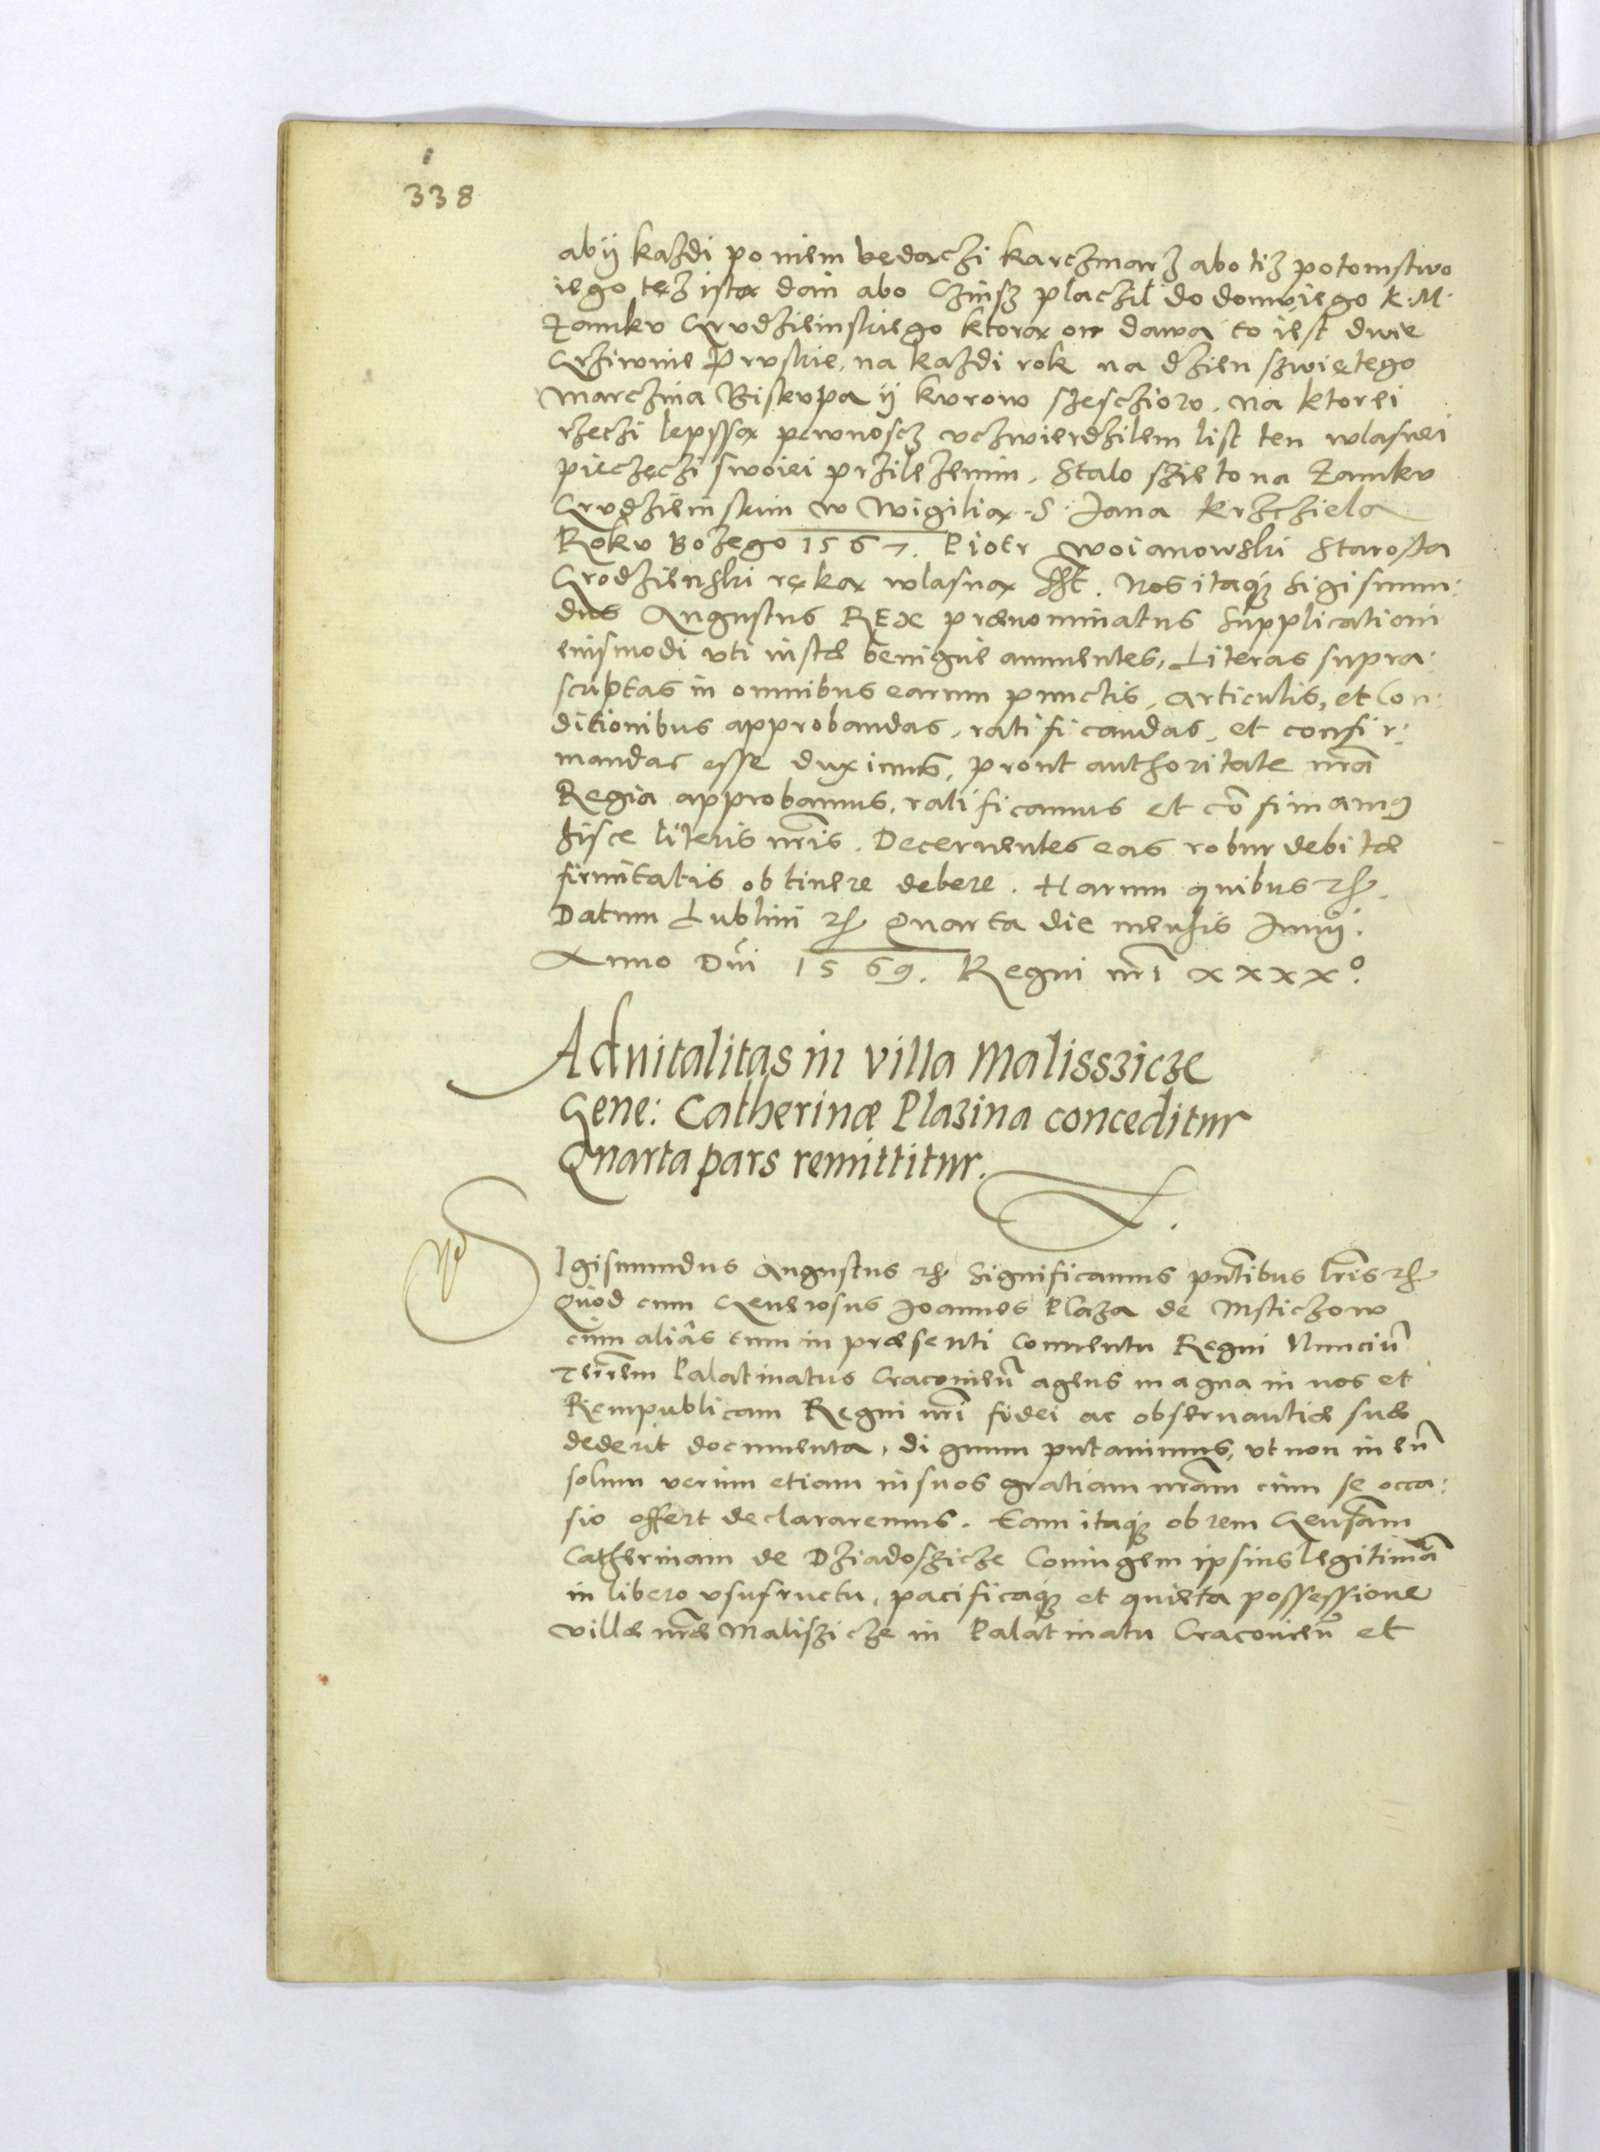 338
abÿ każdi po niem będaczi karczmarz abo tiz potomstwo
iego tęż istą dań abo Czinsz płaczil do domu iego K. M.
Zamku Grudzieinskiego ktorą on dawa to iest dwie
Grziwnie Pruskie, na każdi rok na dzień szwiętego
Marczina Biskupa ÿ kurow szesczioro. Na ktorei
rzeczi lepszą pewnoscz uczwierdzilem list ten wlasnei
pieczęczi swoiei prziłozenim. Stalo szie to na Zamku
Grudzieinskim w Wigilią S. Jana Krzcziela
Roku Bożego 1567. Piotr Woianowski Starosta
Grodzieński ręką wlasną sst. Nos itaq; Sigismun:
dus Augustus REX prænominatus Supplicationi
eiusmodi uti iustæ benigne annuentes, Literas supra:
scriptas in omnibus earum punctis, articulis, et Con:
ditionibus approbandas, ratificandas, et confir:
mandas esse duximus, prout authoritate nrã
Regia approbamus, ratificamus et cõfirmamꝰ
hisce literis nr̃is. Decernentes eas robur debitæ
firmitatis obtinere debere. Harum quibus ꝛc.
Datum Lublini ꝛc Quarta die mensis Junij.
Anno Dñi 1569. Regni nr̃i XXXXº.
Advitalitas in villa Malissziczе
Gene: Catherinæ Plazina conceditur
Quarta pars remittitur.
SIgismundus Augustus ꝛc Significamus pñtibus lr̃is ꝛc
Quod cum Generosus Joannes Plaza de Msticzow
cùm aliàs tum in præsenti Conventu Regni Nunciũ
Terrẽm Palatinatus Cracovieñ agens magna in nos et
Rempublicam Regni nr̃i fidei ac observantiæ suæ
dederit documenta, dignum putavimus, ut non in eũ
solum verùm etiam in suos gratiam nrãm cùm se occa:
sio offert declararemus. Eam itaq; ob rem Gensãm
Catherinam de Dziadoszicze Coniugem ipsius legitimã
in libero usufructu, pacificaq; et quieta possessione
villæ nr̃æ Maliszicze in Palatinatu Cracovieñ et